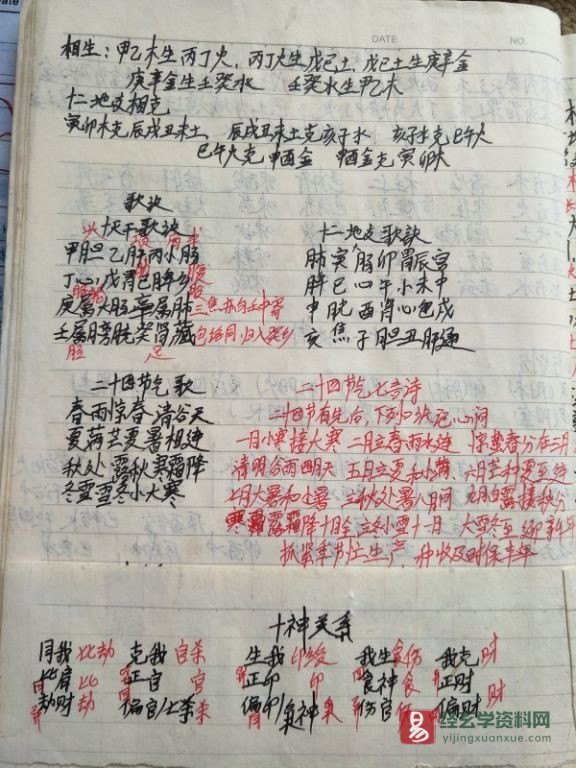 DATE
NO.
相生：甲乙木生丙丁火，丙丁火生戊己土，戊己土生庚辛金
庚辛金生壬癸水 壬癸水生甲乙木
十二地支相克
寅卯木克辰戌丑未土、辰戌丑未土克亥子水，亥子水克巳午火
巳午火克申酉金 申酉金克寅卯木
歌诀
十天干歌诀
甲胆乙肝丙小肠
丁心戊胃己脾乡
庚属大肠辛属肺 三焦亦向壬中寄
壬属膀胱癸肾藏 包络同归入癸乡
十二地支歌诀
肺寅大肠卯胃辰宫
脾巳心午小未中
申胱酉肾心包戌
亥焦子胆丑肝通
二十四节气歌
春雨惊春清谷天
夏满芒夏暑相连
秋处露秋寒霜降
冬雪雪冬小大寒
二十四节气七言诗
二十四节有先后，下列口诀记心间
一月小寒接大寒 二月立春雨水连 惊蛰春分在三月
清明谷雨四月天 五月立夏和小满，六月芒种夏至连
七月大暑和小暑 立秋处暑八月间 九月白露接秋分
寒露霜降十月全 立冬小雪十一月 大雪冬至迎新年
抓紧季节忙生产，种收及时保丰年
十神关系
同我 比劫 克我 官杀 生我 印绶 我生 食伤 我克 财
比肩 比 正官 官 正印 印 食神 食 正财
劫财 劫 偏官/七杀 杀 偏印/枭神 枭 伤官 伤 偏财 财
易
经玄学资料网
yijingxuanxue.com